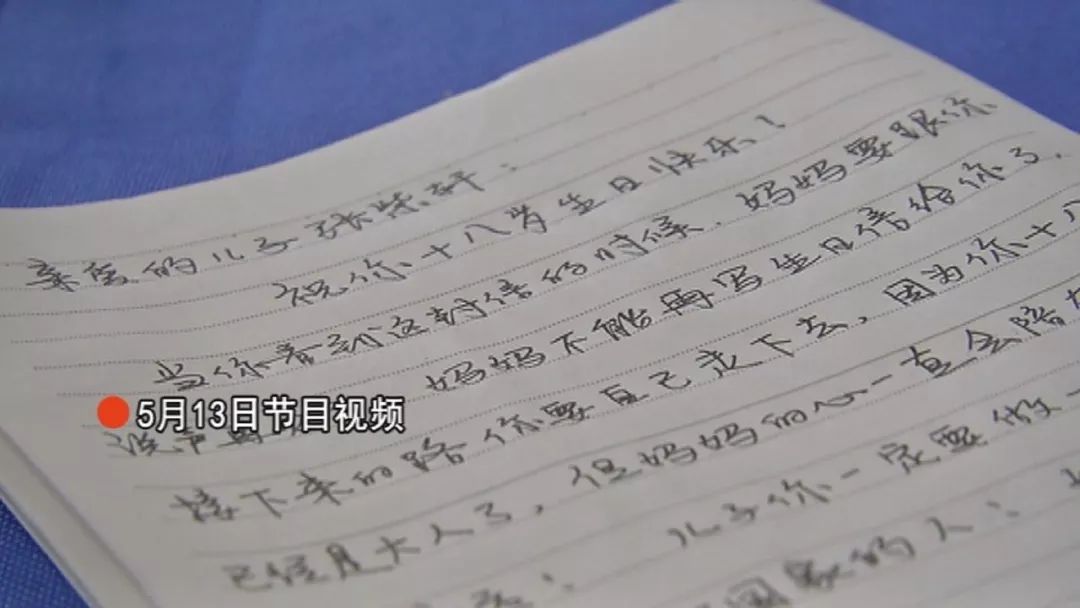 亲爱的儿子张紫轩：
祝你十八岁生日快乐！
当你看到这封信的时候，妈妈要跟你
妈妈不能再写生日信给你了，
接下来的路你要自己走下去，因为你十八
已经是大人了，但妈妈的心一直会陪
儿子你一定要做一
国家的人；
5月13日节目视频